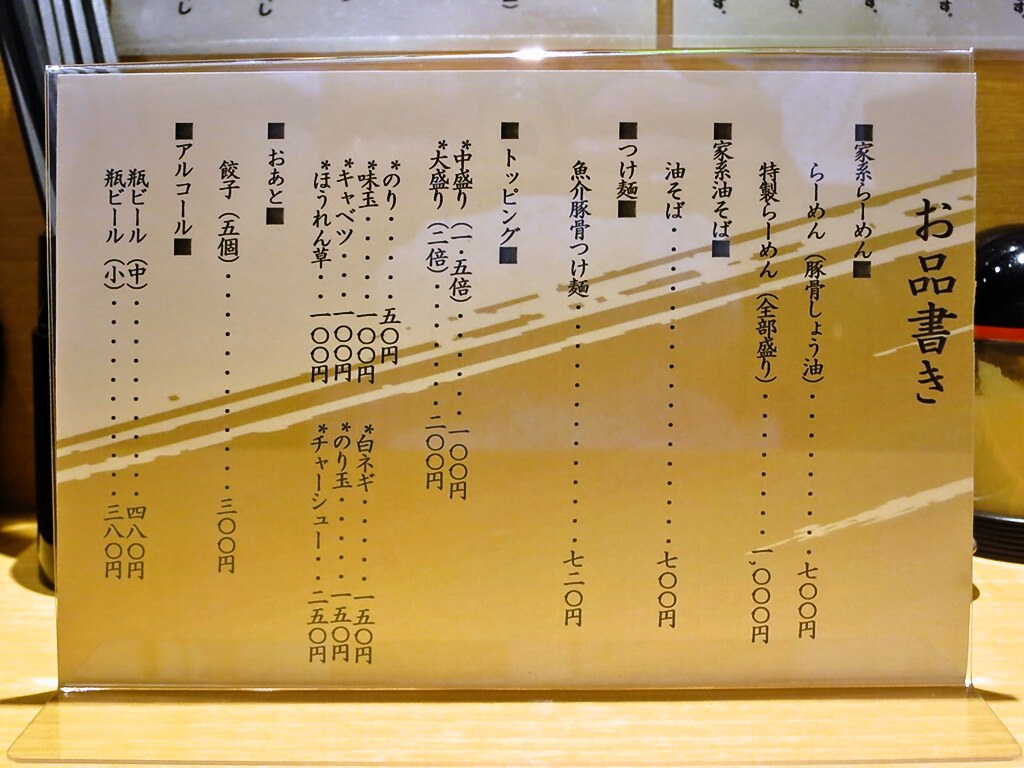 お品書き
■家系らーめん■
らーめん（豚骨しょう油）・・・・・・・・七〇〇円
特製らーめん（全部盛り）・・・・・・・・一、〇〇〇円
■家系油そば■
油そば・・・・・・・・・・・・・・・・・七〇〇円
■つけ麺■
魚介豚骨つけ麺・・・・・・・・・・・・・七二〇円
■トッピング■
*中盛り（一．五倍）・・・・・・一〇〇円
*大盛り（二倍）・・・・・・・・二〇〇円
*のり・・・・・五〇円
*味玉・・・・・一〇〇円
*キャベツ・・・一〇〇円
*ほうれん草・・一〇〇円
*白ネギ・・・・・一五〇円
*のり玉・・・・・一五〇円
*チャーシュー・・二五〇円
■おあと■
餃子（五個）・・・・・・・・・・・・三〇〇円
■アルコール■
瓶ビール（中）・・・・・・・・・・・四八〇円
瓶ビール（小）・・・・・・・・・・・三八〇円